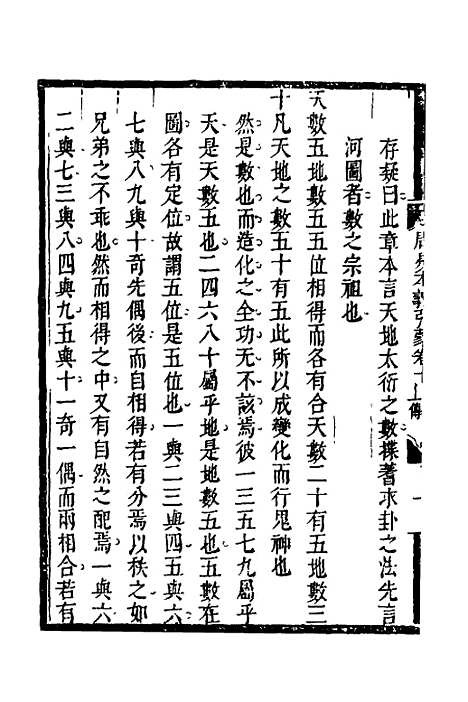 存疑曰此章本言天地太衍之數揲蓍求卦之法先言
河圖者數之宗祖也
天數五地數五五位相得而各有合天數二十有五地數三
十凡天地之數五十有五此所以成變化而行鬼神也
然是數也而造化之全功无不該焉彼一三五七九屬乎
天是天數五也二四六八十屬乎地是地數五也五數在
圖各有定位故謂五位是五位也一與二三與四五與六
七與八九與十奇先偶後而自相得若有分焉以秩之如
兄弟之不乖也然而相得之中又有自然之配焉一與六
二與七三與八四與九五與十一奇一偶而兩相合若有